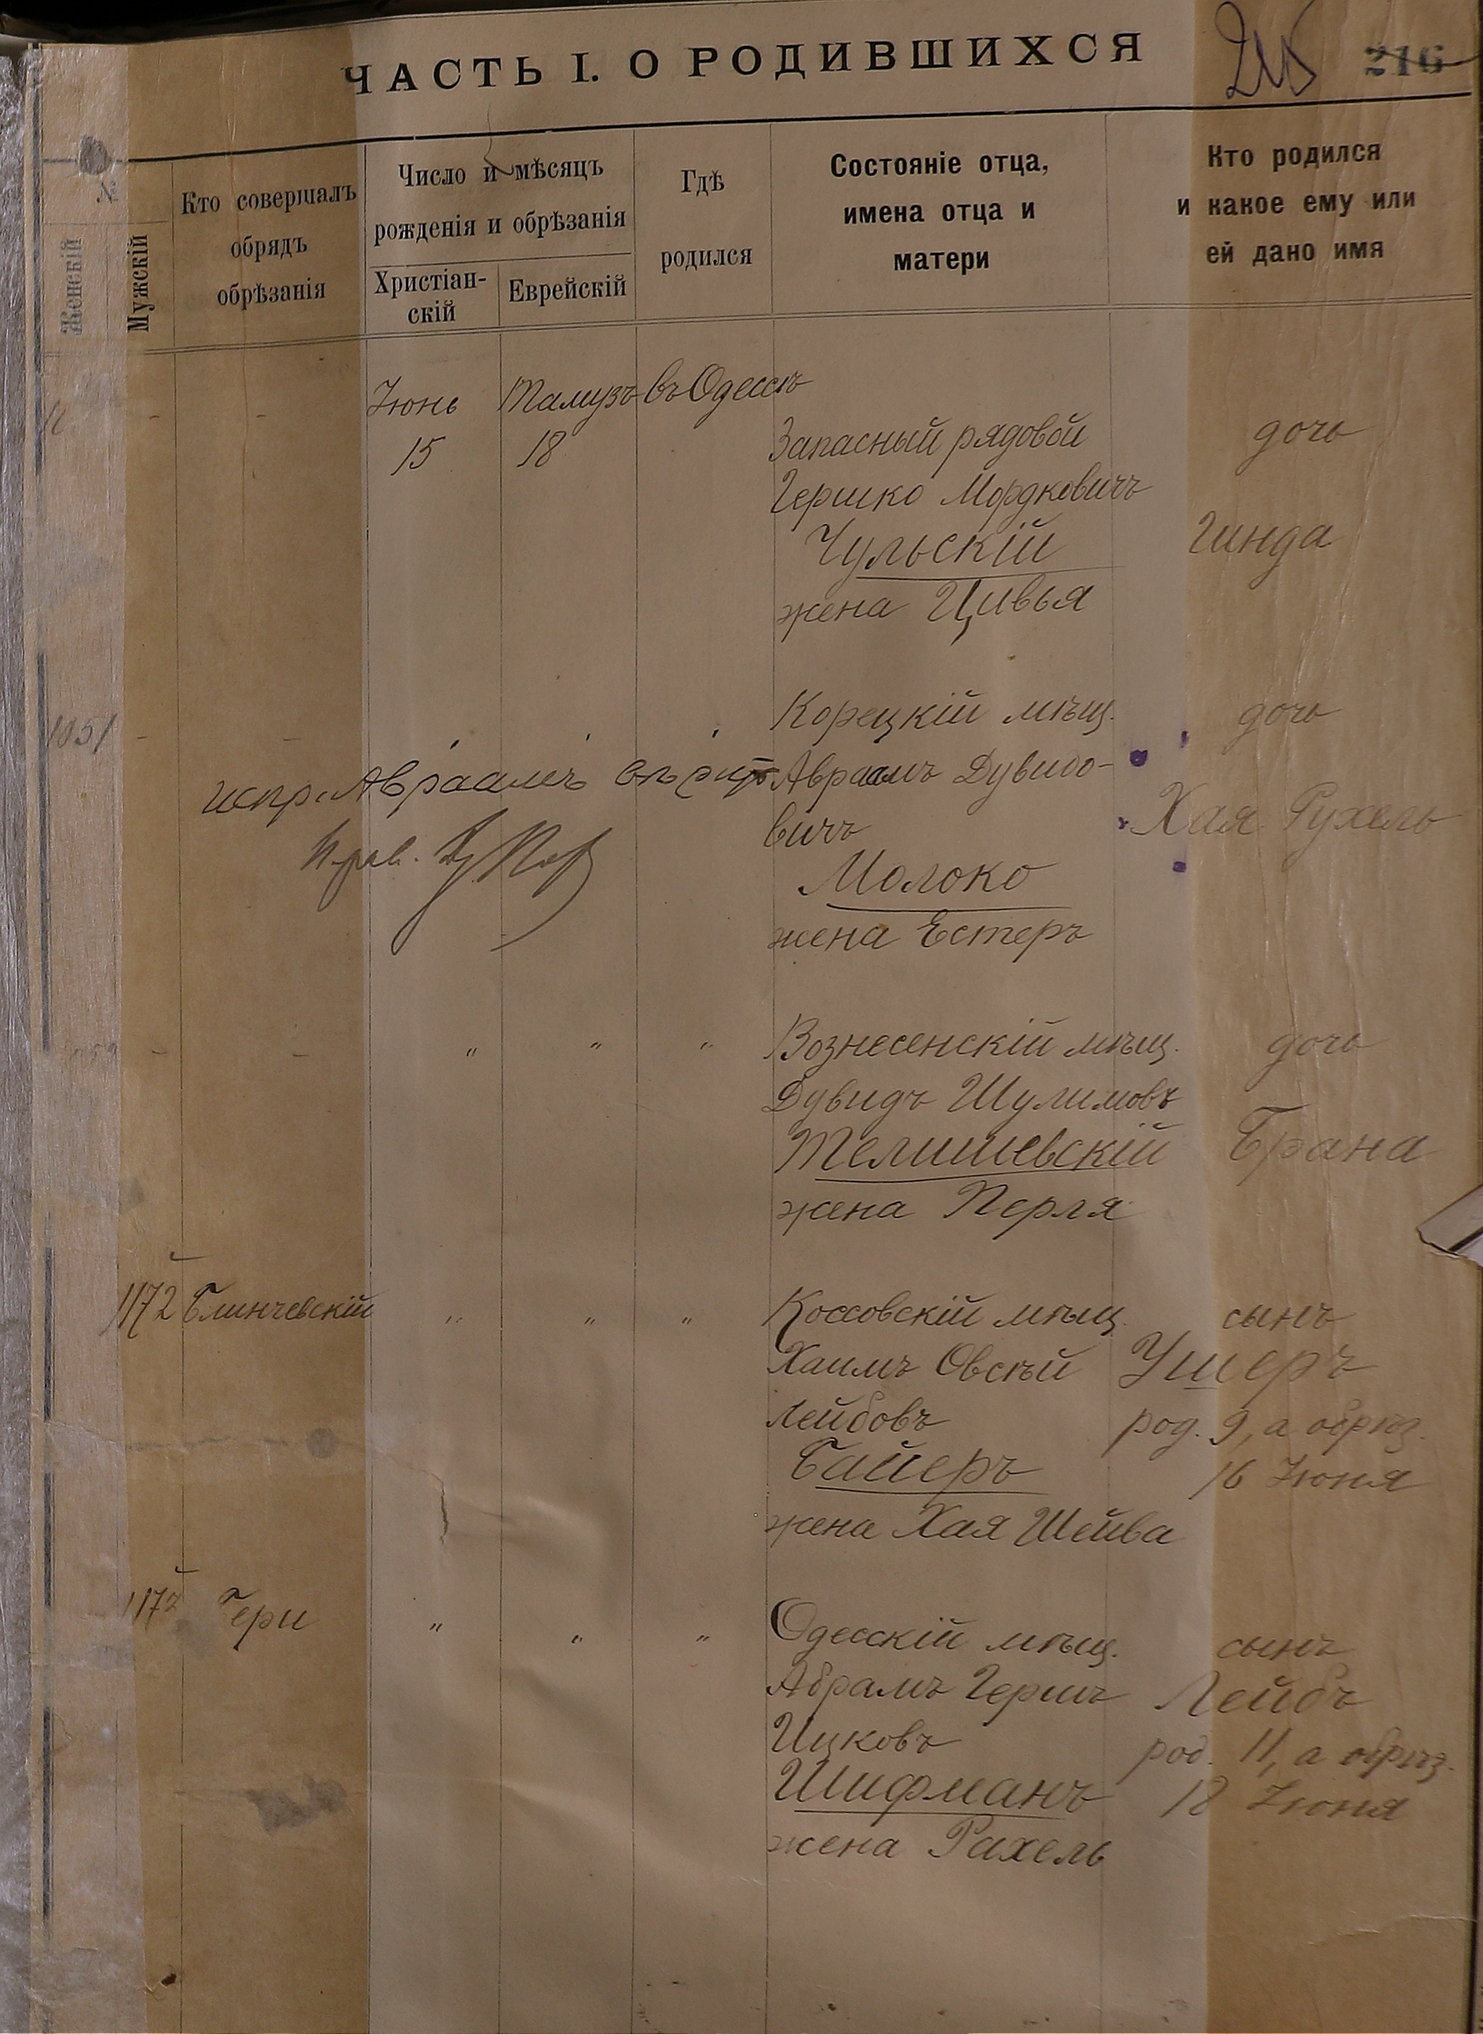 ЧАСТЬ I. О РОДИВШИХСЯ
216
№
Женскій
Мужскій
Кто совершалъ
обрядъ
обрѣзанія
Число и мѣсяцъ
рожденія и обрѣзанія
Христіан-
скій
Еврейскій
Гдѣ
родился
Состояніе отца,
имена отца и
матери
Кто родился
и какое ему или
ей дано имя
Іюнь Тамузъ въ Одессѣ
15 18
Запасный рядовой
Гершко Мордковичъ
Чульскій
жена Цивья
дочь
Гинда
1051
Корецкій мѣщ.
Авраамъ Дувидо-
вичъ
Молоко
жена Естеръ
дочь
Хая Рухель
испр. Авраамъ
" " "
Вознесенскій мѣщ.
Дувидъ Шулимовъ
Телишевскій
жена Перля
дочь
Брана
1172 Блинчевскій " " "
Коссовскій мѣщ.
Хаимъ Овсѣй
Лейбовъ
Байеръ
жена Хая Шейва
сынъ
Ушеръ
род. 9, а обрѣз.
16 Іюня
Гери " " "
Одесскій мѣщ.
Абрамъ Гершъ
Ицковъ
Шифманъ
жена Рахель
сынъ
Лейбъ
род. 11, а обрѣз.
18 Іюня